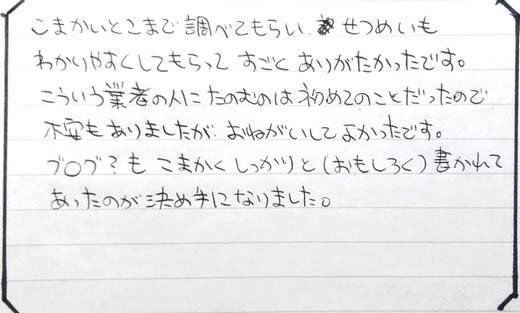 こまかいとこまで調べてもらい せつめいも
わかりやすくしてもらって すごく ありがたかったです。
こういう業者の人にたのむのは初めてのことだったので
不安もありましたが、おねがいしてよかったです。
ブログ?も こまかく しっかりと(おもしろく)書かれて
あったのが決め手になりました。